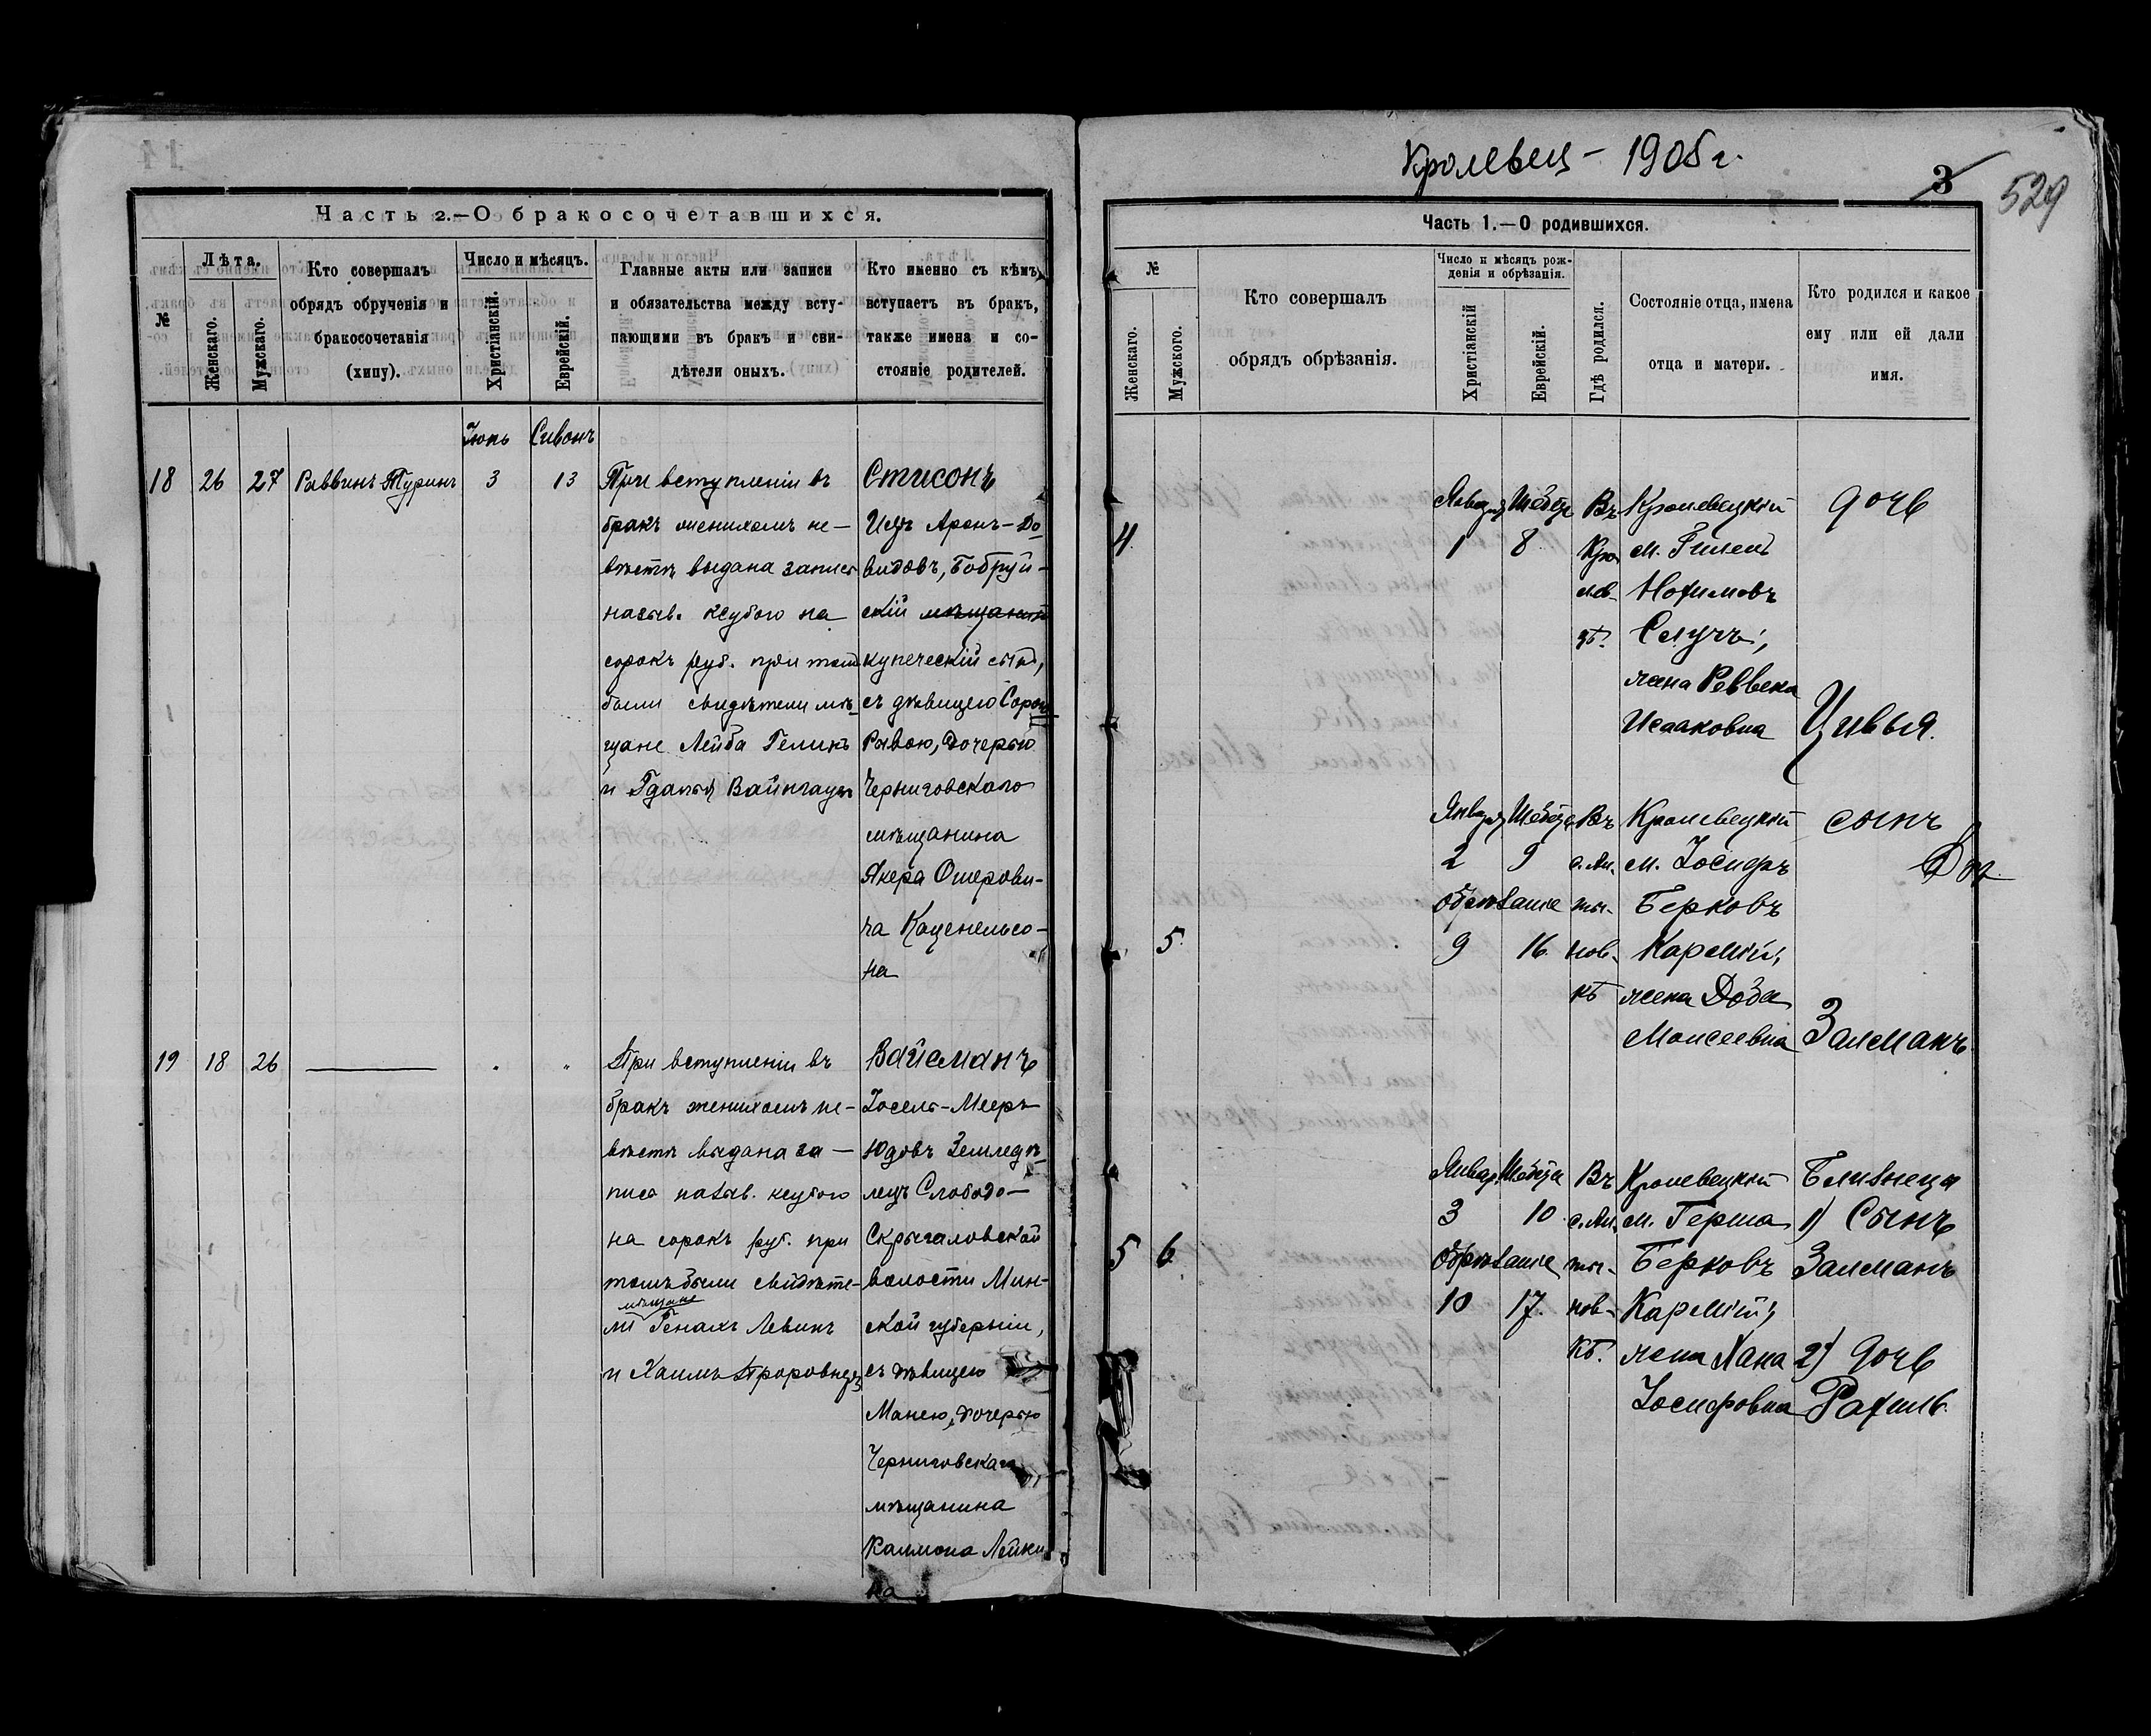 Часть 2.—О бракосочетавшихся.
№
Лѣта.
Женскаго.
Мужскаго.
Кто совершалъ
обрядъ обрученія и
бракосочетанія
(хипу).
Число и мѣсяцъ.
Христіанскій.
Еврейскій.
Главные акты или записи
и обязательства между всту-
пающими въ бракъ и сви-
дѣтели оныхъ.
Кто именно съ кѣмъ
вступаетъ въ бракъ,
также имена и со-
стояніе родителей.
Іюнь Сивонъ
18 26 27 Раввинъ Туринъ 3 13
При вступленіи въ
бракъ женихомъ не-
вѣстѣ выдана запись
назыв. ксубою на
сорокъ руб. при томъ
были свидѣтели мѣ-
щане Лейба Геликъ
и Гдалья
Стисонъ
Ицъ Аронъ-До-
видовъ, Бобруй-
скій мѣщанинъ
купеческій сынъ,
съ дѣвицею Сорою
Ривою, дочерью
Черниговскаго
мѣщанина
Якера Ошерови-
ча Каценельсо-
на
19 18 26 — " "
При вступленіи въ
бракъ женихомъ не-
вѣстѣ выдана за-
пись назыв. ксубою
на сорокъ руб. при
томъ были свидѣте-
мѣщане
ли Генахъ Левинъ
и Хаимъ
Вайсманъ
Іосель-Мееръ
Юдовъ Земледѣ-
лецъ Слободо-
Скрыгаловской
волости Мин-
ской губерніи,
съ дѣвицею
Манею, дочерью
Черниговскаго
мѣщанина
Калмона Лейки-
на
Кролевец - 1905 г.
3
529
Часть 1.—О родившихся.
№
Женскаго.
Мужского.
Кто совершалъ
обрядъ обрѣзанія.
Число и мѣсяцъ рож-
денія и обрѣзанія.
Христіанскій
Еврейскій.
Гдѣ родился.
Состояніе отца, имена
отца и матери.
Кто родился и какое
ему или ей дали
имя.
4
Январь Шебетъ
1 8
Въ
Кро-
лев-
цѣ.
Кролевецкій
м. Гилель
Нохимовъ
Случъ;
жена Ревека
Исааковна
дочь
Цивья.
5
Январь Шебетъ
2 9
Обрѣзаніе
9 16.
Въ
с. Ал-
ты-
нов-
кѣ
Кролевецкій
м. Іосифъ
Берковъ
Карскій;
жена Доба
Моисеевна
сынъ
Залманъ
5 6
Январь Шебетъ
3 10
Обрѣзаніе
10 17.
Въ
с. Ал-
ты-
нов-
кѣ.
Кролевецкій
м. Герша
Берковъ
Карскій;
жена Хана
Іосифовна
Близнецы
1) Сынъ
Залманъ
2) дочь
Рахиль